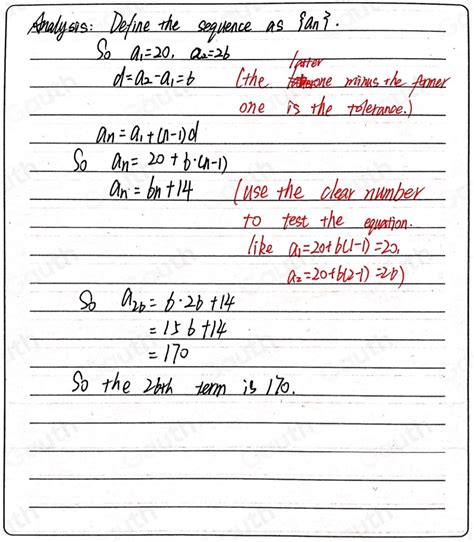 Analysis: Define the sequence as {an}.
So a₁=20, a₂=26
latter
d=a₂-a₁=6 (the one minus the former
one is the tolerance.)
an=a₁+(n-1)d
So an=20+6·(n-1)
an=6n+14 (use the clear number
to test the equation.
like a₁=20+6(1-1)=20,
a₂=20+6(2-1)=26)
So a₂₆=6·26+14
=156+14
=170
So the 26th term is 170.